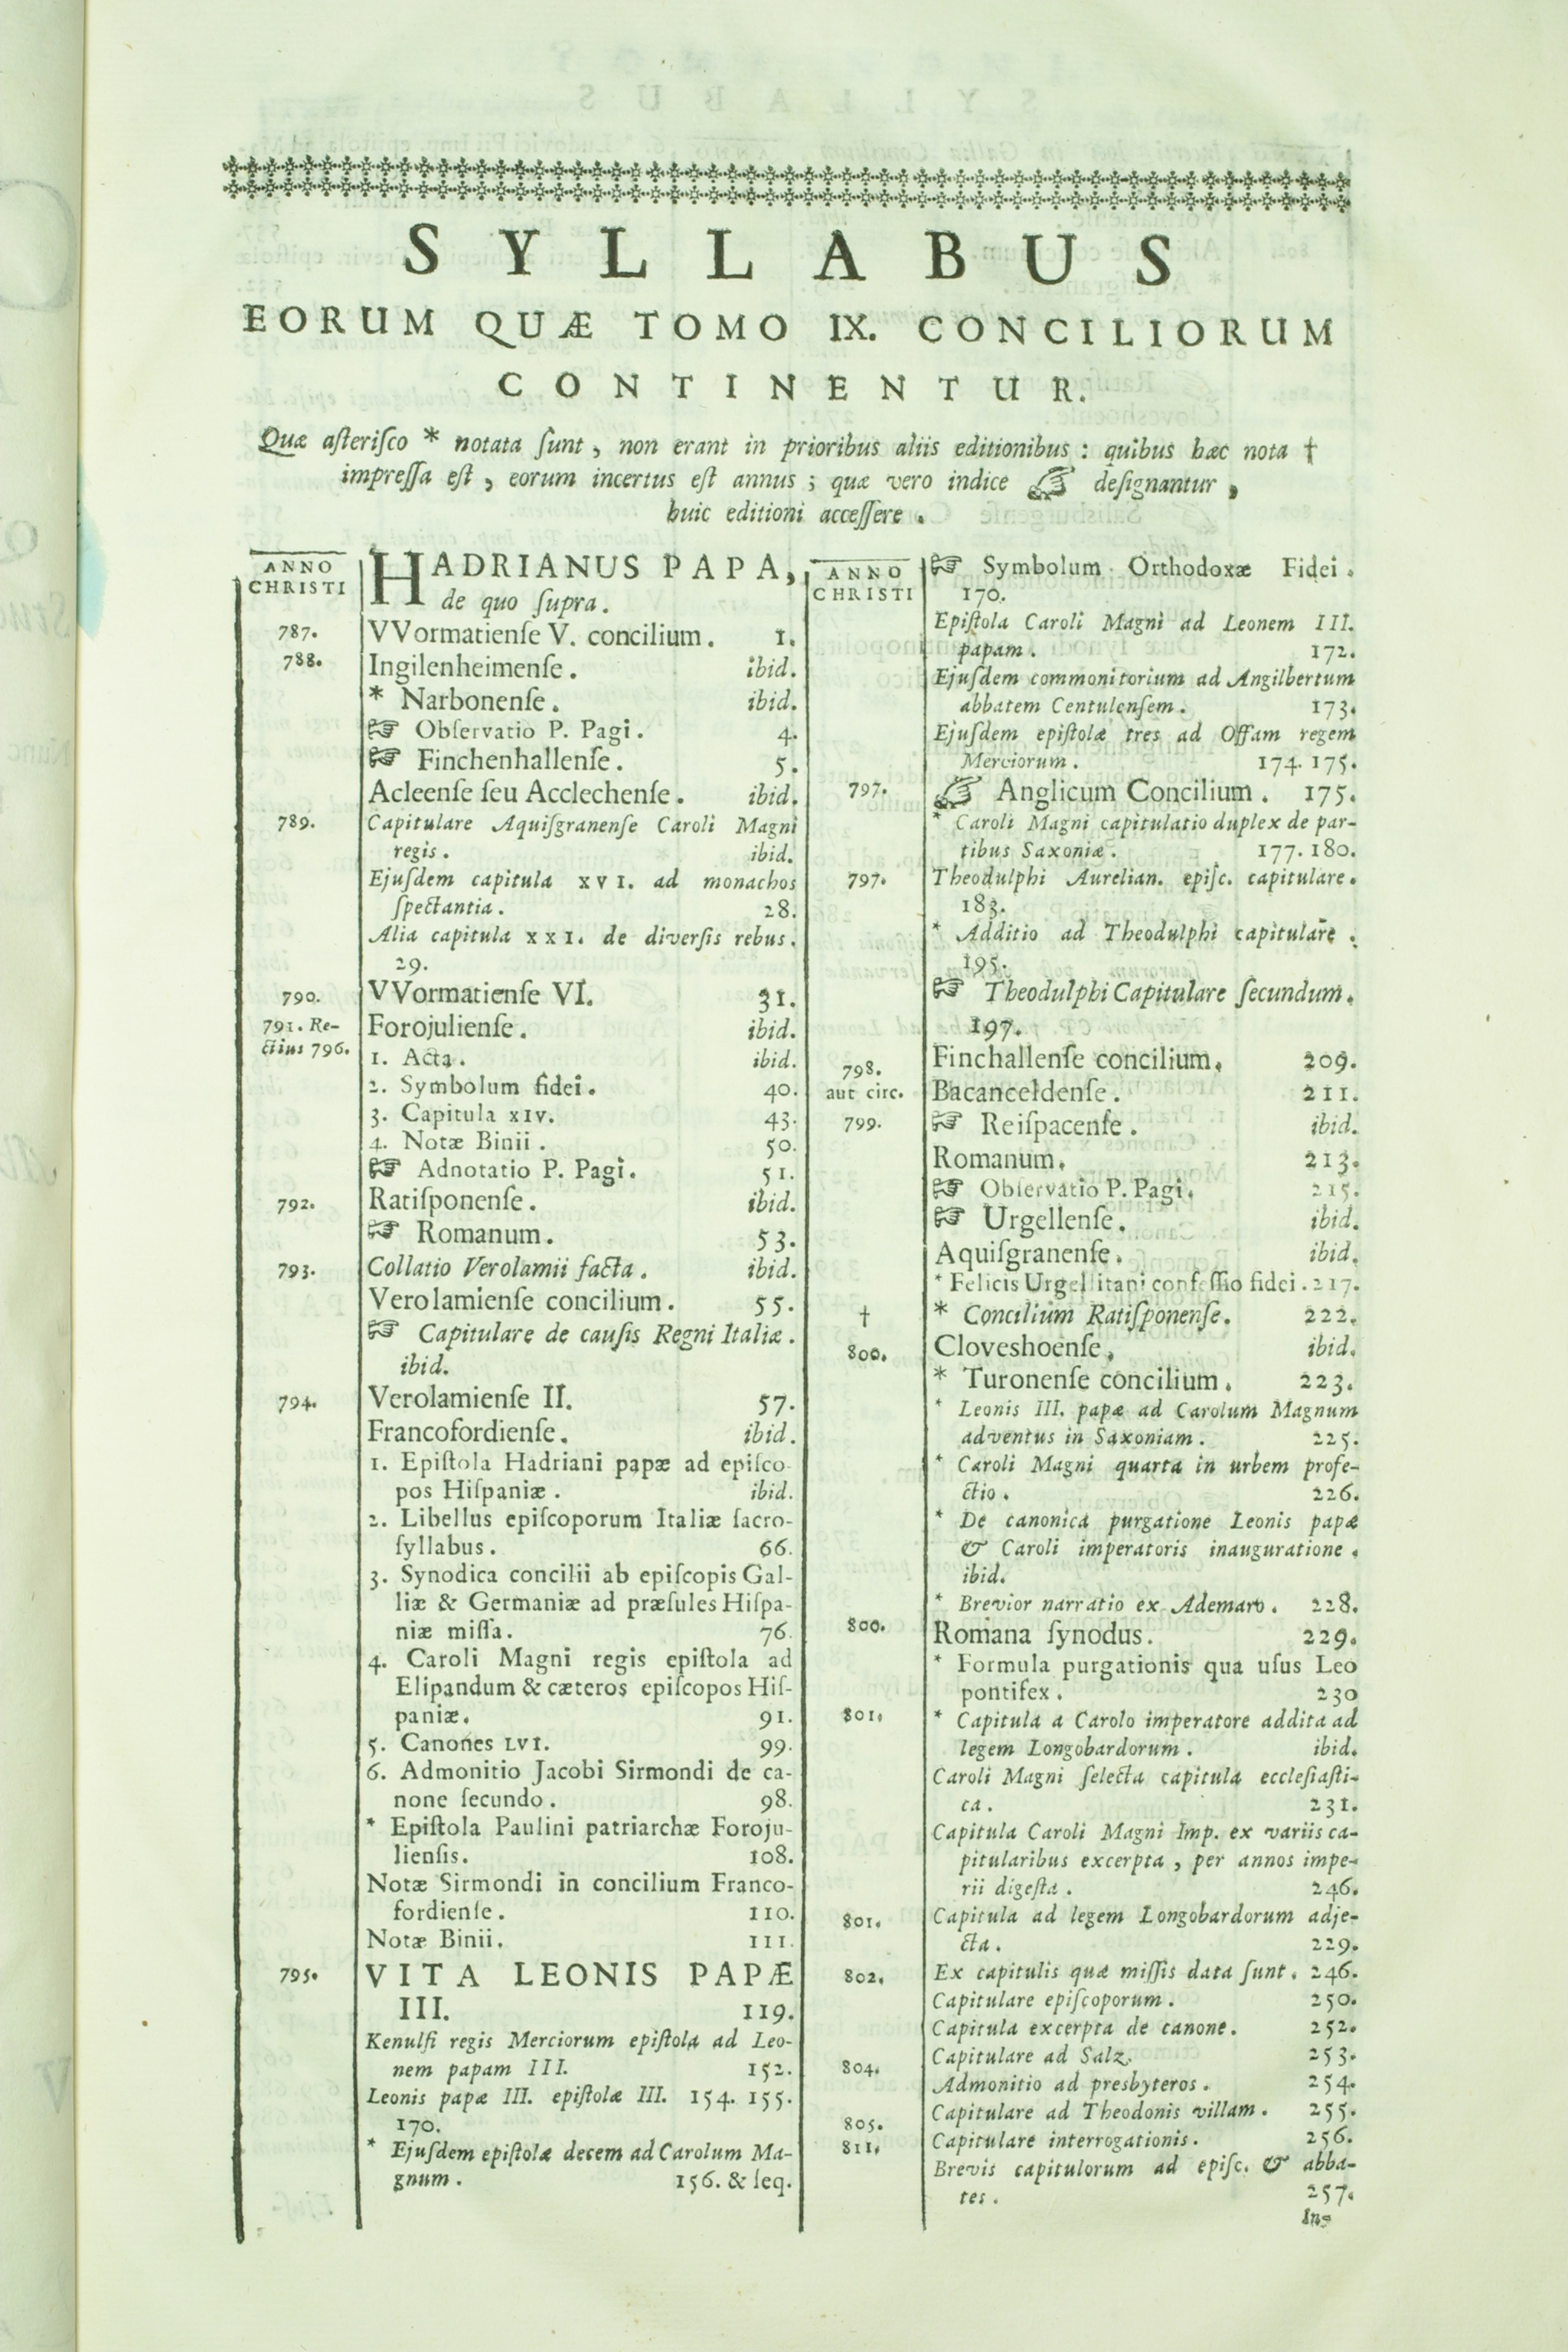 SYLLABUS
EORUM QUÆ TOMO IX. CONCILIORUM
CONTINENTUR.
Quæ aſteriſco * notata ſunt, non erant in prioribus aliis editionibus: quibus hæc nota †
impreſſa eſt, eorum incertus eſt annus; quæ vero indice ☞ deſignantur,
huic editioni acceſſere.
ANNO
CHRISTI
HADRIANUS PAPA,
de quo ſupra.
787. VVormatienſe V. concilium. 1.
788. Ingilenheimenſe. ibid.
* Narbonenſe. ibid.
☞ Obſervatio P. Pagi. 4.
☞ Finchenhallenſe. 5.
Acleenſe ſeu Acclechenſe. ibid.
789. Capitulare Aquiſgranenſe Caroli Magni
regis. ibid.
Ejuſdem capitula XVI. ad monachos
ſpectantia. 28.
Alia capitula XXI. de diverſis rebus.
29.
790. VVormatienſe VI. 31.
791. Re- Forojulienſe. ibid.
ctius 796. 1. Acta. ibid.
2. Symbolum fidei. 40.
3. Capitula XIV. 43.
4. Notæ Binii. 50.
☞ Adnotatio P. Pagi. 51.
792. Ratiſponenſe. ibid.
☞ Romanum. 53.
793. Collatio Verolamii facta. ibid.
Verolamienſe concilium. 55.
☞ Capitulare de cauſis Regni Italiæ.
ibid.
794. Verolamienſe II. 57.
Francofordienſe. ibid.
1. Epiſtola Hadriani papæ ad epiſco-
pos Hiſpaniæ. ibid.
2. Libellus epiſcoporum Italiæ ſacro-
ſyllabus. 66.
3. Synodica concilii ab epiſcopis Gal-
liæ & Germaniæ ad præſules Hiſpa-
niæ miſſa. 76.
4. Caroli Magni regis epiſtola ad
Elipandum & cæteros epiſcopos Hiſ-
paniæ. 91.
5. Canones LVI. 99.
6. Admonitio Jacobi Sirmondi de ca-
none ſecundo. 98.
* Epiſtola Paulini patriarchæ Foroju-
lienſis. 108.
Notæ Sirmondi in concilium Franco-
fordienſe. 110.
Notæ Binii. 111.
795. VITA LEONIS PAPÆ
III. 119.
Kenulfi regis Merciorum epiſtola ad Leo-
nem papam III. 152.
Leonis papæ III. epiſtolæ III. 154. 155.
170.
* Ejuſdem epiſtolæ decem ad Carolum Ma-
gnum. 156. & ſeq.
ANNO
CHRISTI
☞ Symbolum Orthodoxæ Fidei.
170.
Epiſtola Caroli Magni ad Leonem III.
papam. 172.
Ejuſdem commonitorium ad Angilbertum
abbatem Centulenſem. 173.
Ejuſdem epiſtolæ tres ad Offam regem
Merciorum. 174. 175.
797. ☞ Anglicum Concilium. 175.
* Caroli Magni capitulatio duplex de par-
tibus Saxoniæ. 177. 180.
797. Theodulphi Aurelian. epiſc. capitulare.
183.
* Additio ad Theodulphi capitulare.
195.
☞ Theodulphi Capitulare ſecundum.
197.
798. Finchallenſe concilium. 209.
aut circ. Bacanceldenſe. 211.
799. ☞ Reiſpacenſe. ibid.
Romanum. 213.
☞ Obſervatio P. Pagi. 215.
☞ Urgellenſe. ibid.
Aquiſgranenſe. ibid.
* Felicis Urgellitani confeſſio fidei. 217.
† * Concilium Ratiſponenſe. 222.
800. Cloveshoenſe. ibid.
* Turonenſe concilium. 223.
* Leonis III. papæ ad Carolum Magnum
adventus in Saxoniam. 225.
* Caroli Magni quarta in urbem profe-
ctio. 226.
* De canonica purgatione Leonis papæ
& Caroli imperatoris inauguratione.
ibid.
* Brevior narratio ex Ademaro. 228.
800. Romana ſynodus. 229.
* Formula purgationis qua uſus Leo
pontifex. 230
801. * Capitula a Carolo imperatore addita ad
legem Longobardorum. ibid.
Caroli Magni ſelecta capitula eccleſiaſti-
ca. 231.
Capitula Caroli Magni Imp. ex variis ca-
pitularibus excerpta, per annos impe-
rii digeſta. 246.
801. Capitula ad legem Longobardorum adje-
cta. 229.
802. Ex capitulis quæ miſſis data ſunt. 246.
Capitulare epiſcoporum. 250.
Capitula excerpta de canone. 252.
Capitulare ad Salz. 253.
804. Admonitio ad presbyteros. 254.
Capitulare ad Theodonis villam. 255.
805. Capitulare interrogationis. 256.
811. Brevis capitulorum ad epiſc. & abba-
tes. 257.